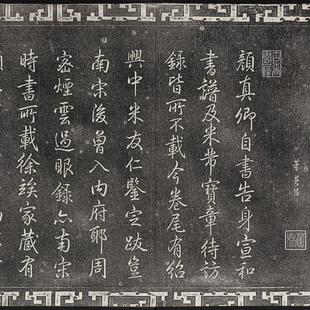 董其昌
顏真卿自書告身宣和
書譜及米芾寶章待訪
錄皆所不載今卷尾有紹
興中米友仁鑒定跋豈
南宋後曾入內府耶周
密煙雲過眼錄亦南宋
時書所載徐琰家藏有